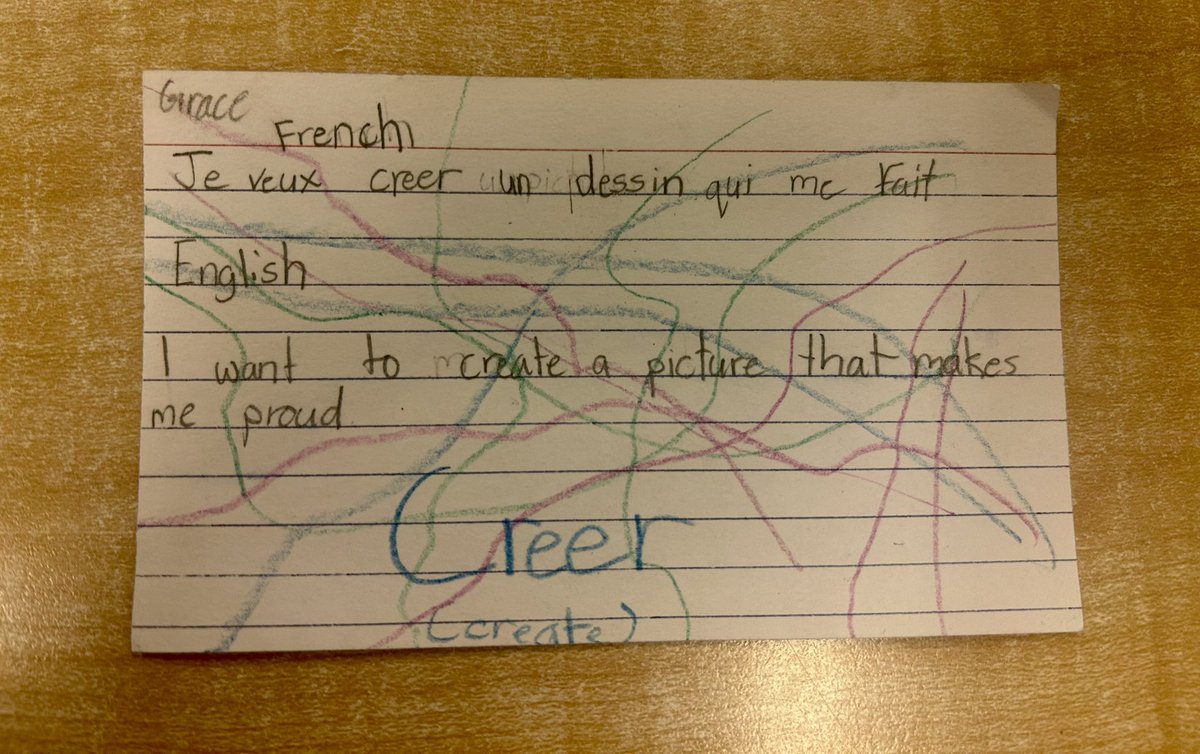 Grace
French
Je veux creer un dessin qui me fait
English
I want to create a picture that makes
me proud
Creer
(create)